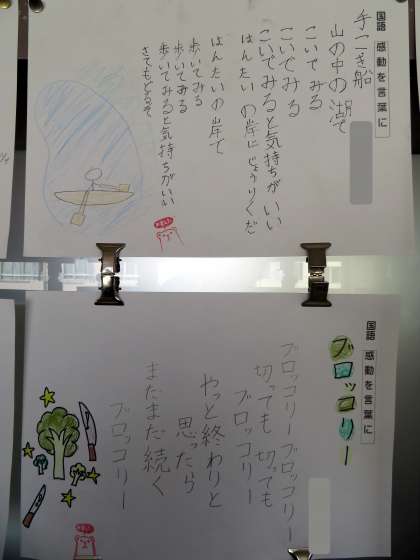 国語 感動を言葉に
手こぎ船
山の中の湖で
こいでみる
こいでみる
こいでみると気持ちがいい
はんたいの岸にじょうりくだ
はんたいの岸で
歩いてみる
歩いてみる
歩いてみると気持ちがいい
さてもどるぞ
国語 感動を言葉に
ブロッコリー
ブロッコリー ブロッコリー
切っても 切っても
ブロッコリー
やっと終わりと
思ったら
まだまだ続く
ブロッコリー